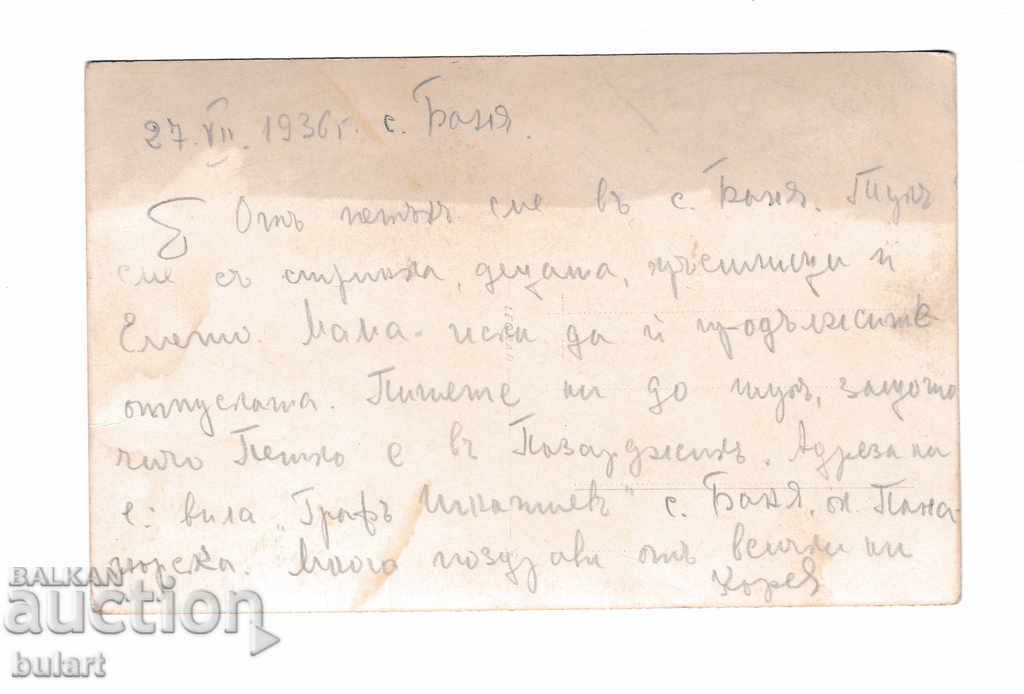 27.VII.1936г. с. Баня.
Отъ петъкъ сме въ с. Баня. Тукъ
сме съ стринка, децата, и
Елето. Мама иска да ѝ продължите
отпуската. Пишете ни до тукъ, защото
чичо Петко е въ Пазарджикъ. Адреса ни
е: вила „Графъ Игнатиевъ" с. Баня, ок. Пана-
гюрска. Много поздрави отъ всички ни
BALKAN
auction
bulart